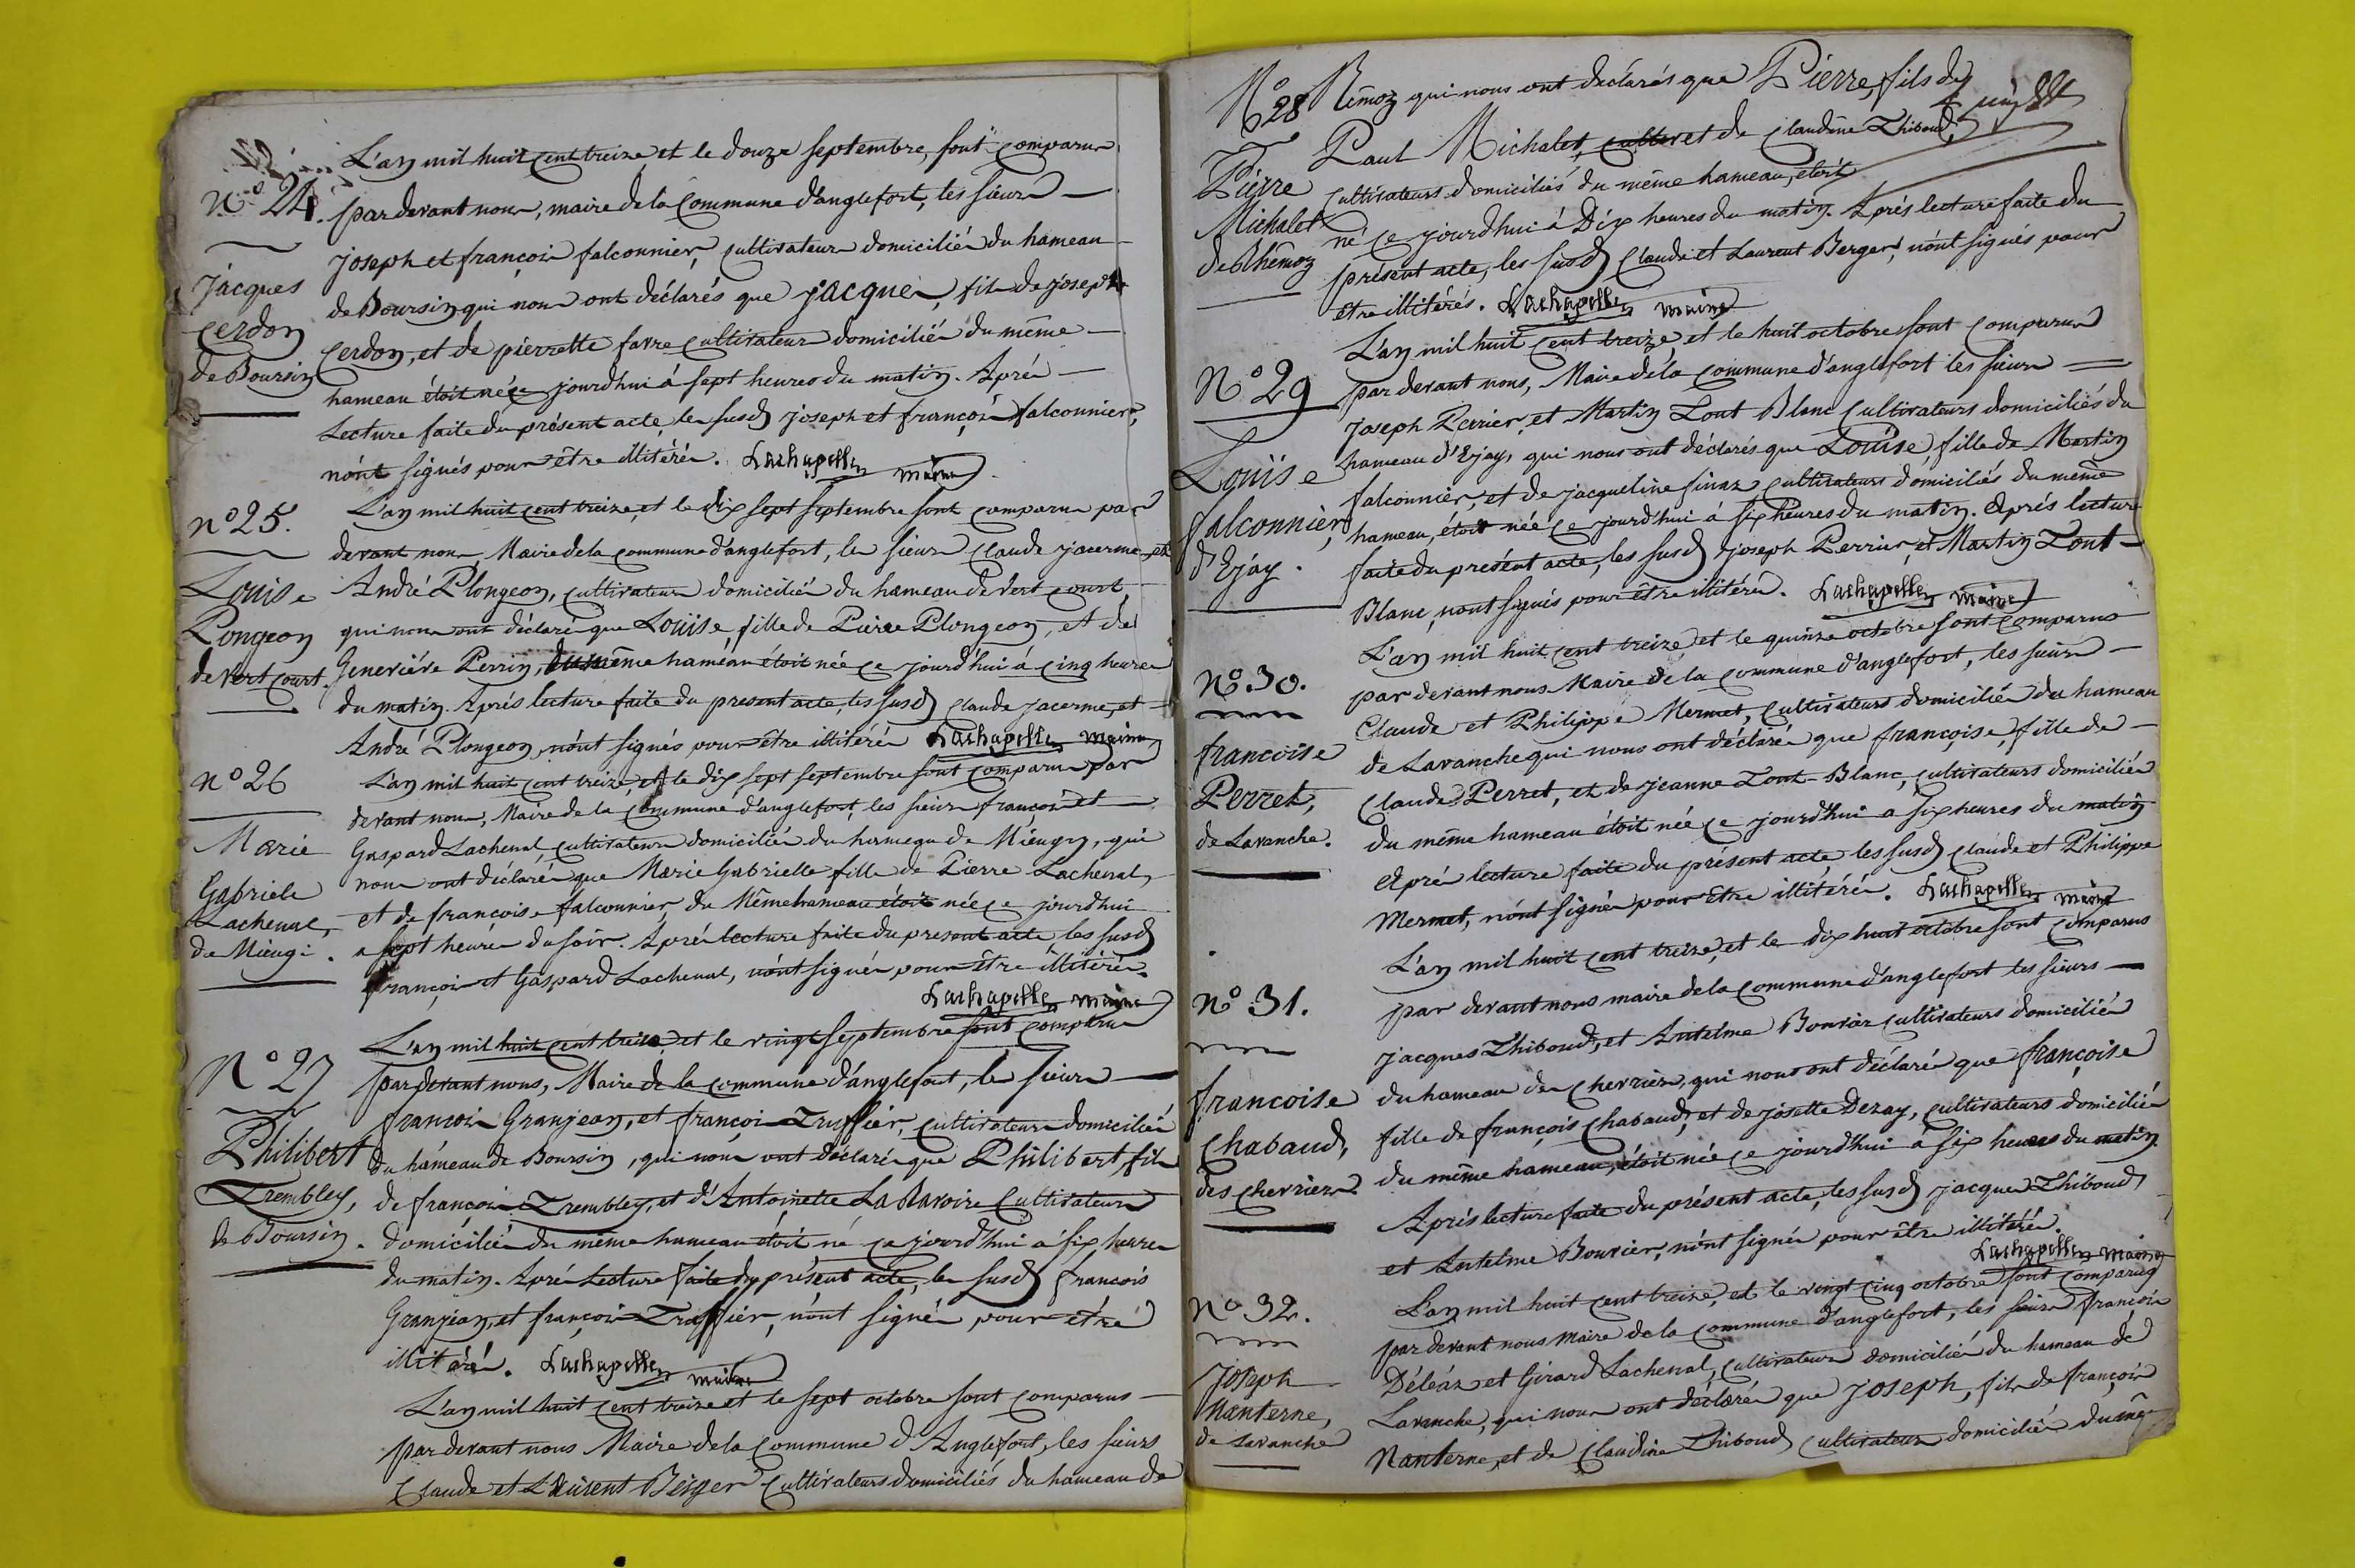 L'an mil huit cent treize et le douze septembre, sont comparus
N.° 24. par devant nous, maire de la Commune d'anglefort, les sieurs —
joseph et françois falconnier, cultivateurs domiciliés du hameau
Jacques
de Boursin qui nous ont déclarés que jacques, fils de joseph
Cerdon
Cerdon, et de pierrette favre cultivateurs domiciliés du même —
de Boursin
hameau étoit né ce jourd'hui à sept heures du matin. Après —
Lecture faite du présent acte, les susd. joseph et françois falconnier,
n'ónt signés pour être illitérés. Lachapelle maire
n° 25.
L'an mil huit cent treize, et le dix sept septembre sont comparus par
devant nous, Maire de la commune d'anglefort, les sieurs Claude jacerme, et
Louise
André Plongeon, cultivateurs domiciliés du hameau de vert court,
Pongeon
qui nous ont déclaré que Louïse, fille de Pierre Plongeon, et de
de Vert court.
Geneviéve Perrin, du même haméau étoit née ce jourd'hui à cinq heures
du matin. Aprés lecture faite du present acte, les susd. Claude jacerme, et —
André Plongeon, n'ónt signés pour être illitérés Lachapelle maire
n° 26
L'an mil huit cent treize, et le dix sept septembre sont comparus par
devant nous, Maire de la Commune d'anglefort, les sieurs françois et —
Marie
Gaspard Lachenal, cultivateurs domiciliés du hameau de Miéugy, qui
Gabriele
nous ont déclaré que Marie Gabrielle fille de Pierre Lachenal,
Lachenal,
et de françoise falconnier, du Même hameau étoit née ce jourd'hui
de Miéugi.
a sept heures du soir. Après lecture faite du present acte, les susd.
françois et Gaspard Lachenal, n'ónt signés pour être illitérés.
Lachapelle maire
L'an mil huit cent treize, et le vingt septembre sont comparus
N° 27
par devant nous, Maire de la commune d'anglefort, les sieurs —
françois Granjean, et françois Truffier, cultivateurs domiciliés
Philibert
du haméau de Boursin, qui nous ont déclaré que Philibert, fils
Trembley,
de françois Trembley, et d'Antoinette La Ravoire Cultivateurs
de Boursin.
domiciliés du même hameau étoit né ce jourd'hui à six heures
du matin. Après Lecture faite du présent acte, les susd. françois
Granjean, et françois Truffier, n'ónt signés pour etre
illitérés. Lachapelle maire
L'an mil huit cent treize et le sept octobre sont comparus —
par devant nous Maire de la Commune d'Anglefort, les sieurs
Claude et Laurent Berger Cultivateurs domiciliés du hameau de
N° 28 Rémoz qui nous ont declarés que Pierre, fils de
Paul Michalet, et de Claudine Thiboud,
Pierre
cultivateurs domiciliés du même hameau, étoit
Michalet
né ce jourd'hui à Dix heures du matin. Aprés lecture faite du
de Rhémoz
présent acte, les susd. Claude et Laurent Berger, n'ónt signés pour
etre illitérés. Lachapelle maire
L'an mil huit cent treize, et le huit octobre sont comparus
N° 29
par devant nous, Maire de la commune d'anglefort les sieurs —
joseph Perrier, et Martin Tout Blanc Cultivateurs domiciliés du
Louïse
hameau d'Ejay, qui nous ont déclarés que Louise, fille de Martin
falconnier,
falconnier, et de jacqueline sinaz, cultivateurs domiciliés du même
hameau, étoit née ce jourd'hui à six heures du matin. Aprés lecture
d'Ejay.
faite du présent acte, les susd. joseph Perrier, et Martin Tout —
Blanc, n'ont signés pour être illitérés. Lachapelle maire
L'an mil huit cent treize, et le quinze octobre sont comparus
N° 30.
par devant nous Maire de la commune d'anglefort, les sieurs —
Claude et Philippe Mermet, Cultivateurs domiciliés du hameau
francoise
de Lavanche qui nous ont déclaré que françoise, fille de —
Perret,
Claude Perret, et de jeanne Tout-Blanc, cultivateurs domiciliés
de Lavanche.
du même hameau étoit née ce jourd'hui a six heures du matin
Après lecture faite du présent acte, les susd. Claude et Philippe
Mermet, n'ónt signés pour être illitérés. Lachapelle maire
L'an mil huit cent treize, et le dix huit octobre sont comparus
n° 31.
par devant nous maire de la commune d'anglefort les sieurs —
jacques Thiboud, et Antelme Bouvier cultivateurs domiciliés
francoise
du hameau des Cherriers, qui nous ont déclaré que françoise
Chabaud,
fille de françois Chabaud, et de josette Dezay, cultivateurs domiciliés
des cherriers.
du même hameau, étoit née ce jourd'hui à six heures du matin.
Aprés lecture faite du présent acte, les susd. jacques Thiboud
et Antelme Bouvier, n'ónt signés pour être illitérés.
Lachapelle maire
n° 32.
L'an mil huit cent treize, et le vingt cinq octobre sont comparus
par devant nous Maire de la commune d'anglefort, les sieurs françois
joseph
Déléaz et Girard Lachenal, cultivateurs domiciliés du hameau de
Nanterne,
Lavanche, qui nous ont déclaré que joseph, fils de françois
de Lavanche
Nanterne, et de Claudine Thiboud cultivateurs domiciliés du mê-